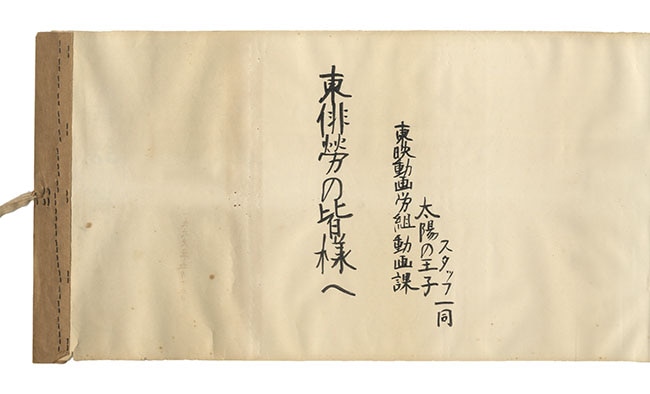 東俳勞の皆様へ
東映動画労組動画課
太陽の王子
スタッフ一同